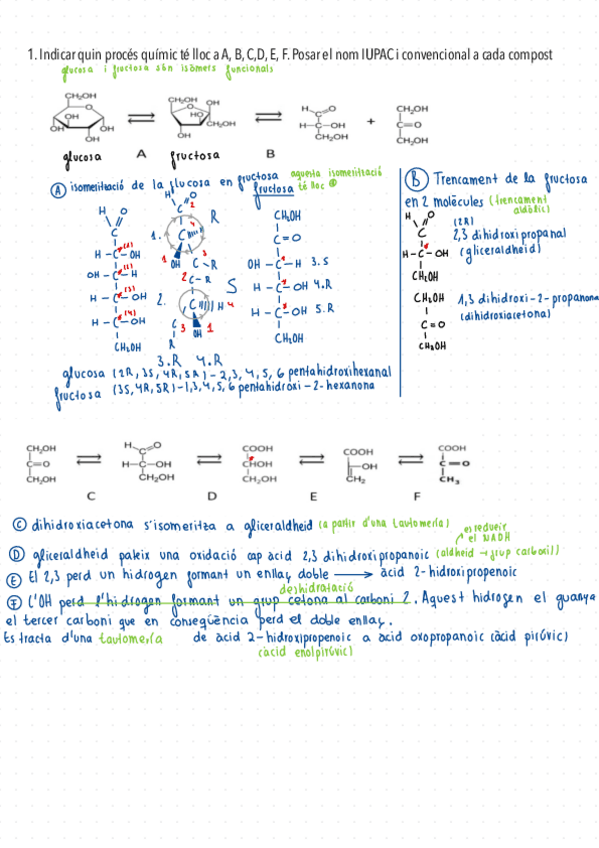 1. Indicar quin procés químic té lloc a A, B, C,D, E, F. Posar el nom IUPAC i convencional a cada compost
glucosa i fructosa són isòmers funcionals
CH₂OH
OH
OH
OH
OH
CH₂OH
OH
HO
CH₂OH
OH
H
C=O
H-C-OH
CH₂OH
+
CH₂OH
C=O
CH₂OH
glucosa A fructosa B
Ⓐ isomerització de la glucosa en fructosa
aquesta isomerització
té lloc @
fructosa
H O
C
H - C - OH (1)
OH - C - H (2)
H - C - OH (3)
H - C - OH (4)
CH₂OH
1. R
2. S
3.R 4.R
CH₂OH
C=O
OH - C - H 3.S
H - C - OH 4.R
H - C - OH 5.R
CH₂OH
glucosa (2R, 3S, 4R, 5R) - 2, 3, 4, 5, 6 pentahidroxihexanal
fructosa (3S, 4R, 5R) - 1, 3, 4, 5, 6 pentahidroxi - 2 - hexanona
Ⓑ Trencament de la fructosa
en 2 molècules (trencament
aldòlic)
H O
C
H-C-OH
CH₂OH
(2R)
2,3 dihidroxipropanal
(gliceraldheid)
CH₂OH
C=O
CH₂OH
1,3 dihidroxi-2-propanona
(dihidroxiacetona)
CH₂OH
C=O
CH₂OH
H
C=O
H-C-OH
CH₂OH
COOH
CHOH
CH₂OH
COOH
OH
CH₂
COOH
C=O
CH₃
C D E F
Ⓒ dihidroxiacetona s'isomeritza a gliceraldheid (a partir d'una tautomeria)
es redueix
el NADH
Ⓓ gliceraldheid pateix una oxidació cap àcid 2,3 dihidroxipropanoic (aldheid → grup carboxil)
Ⓔ El 2,3 perd un hidrogen formant un enllaç doble → àcid 2-hidroxipropenoic
deshidratació
Ⓕ L'OH perd l'hidrogen formant un grup cetona al carboni 2. Aquest hidrogen el guanya
el tercer carboni que en conseqüència perd el doble enllaç.
Es tracta d'una tautomeria de àcid 2-hidroxipropenoic a àcid oxopropanoic (àcid pirúvic)
(àcid enolpirúvic)